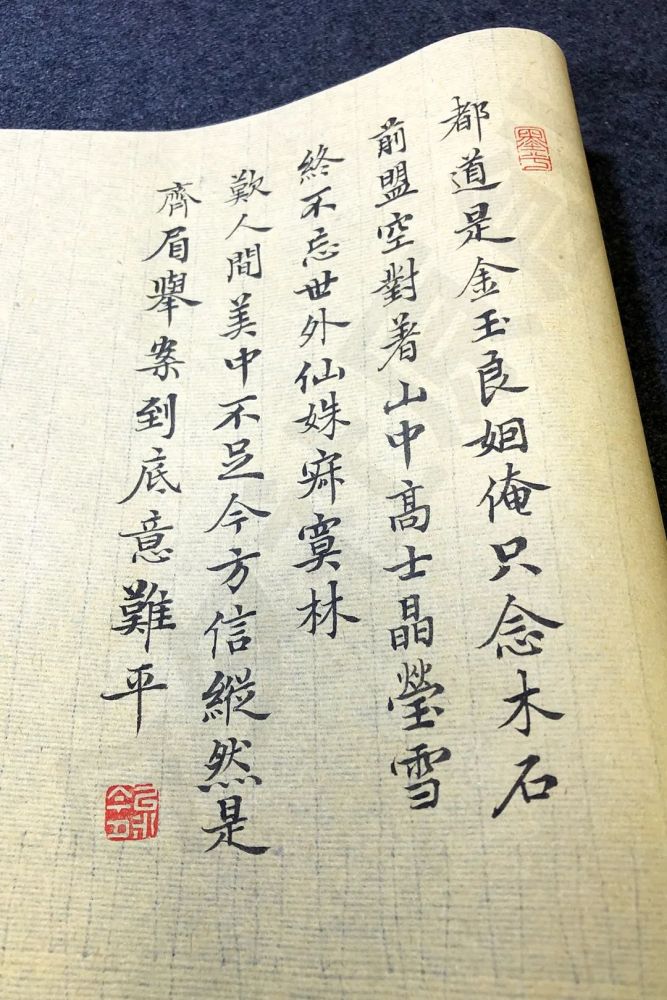 都道是金玉良姻俺只念木石
前盟空對著山中高士晶瑩雪
終不忘世外仙姝寂寞林
歎人間美中不足今方信縱然是
齊眉舉案到底意難平